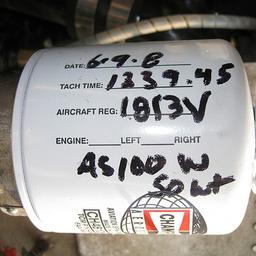 DATE: 6-9-8
TACH TIME: 1239.45
AIRCRAFT REG: 1813V
ENGINE: LEFT RIGHT
AS100 W
50 wt
CHAMP